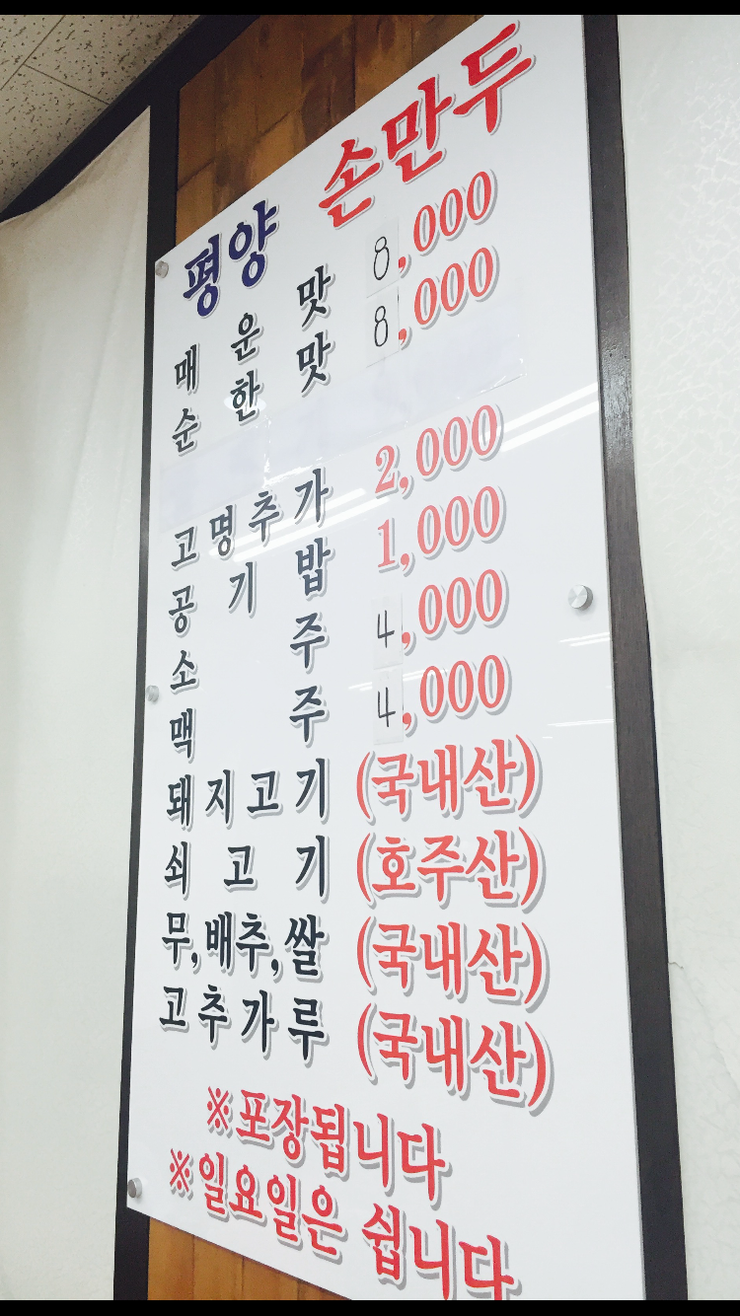 평양 손만두
매운맛 8,000
순한맛 8,000
고명추가 2,000
공기밥 1,000
소주 4,000
맥주 4,000
돼지고기 (국내산)
쇠고기 (호주산)
무,배추,쌀 (국내산)
고추가루 (국내산)
※포장됩니다
※일요일은 쉽니다